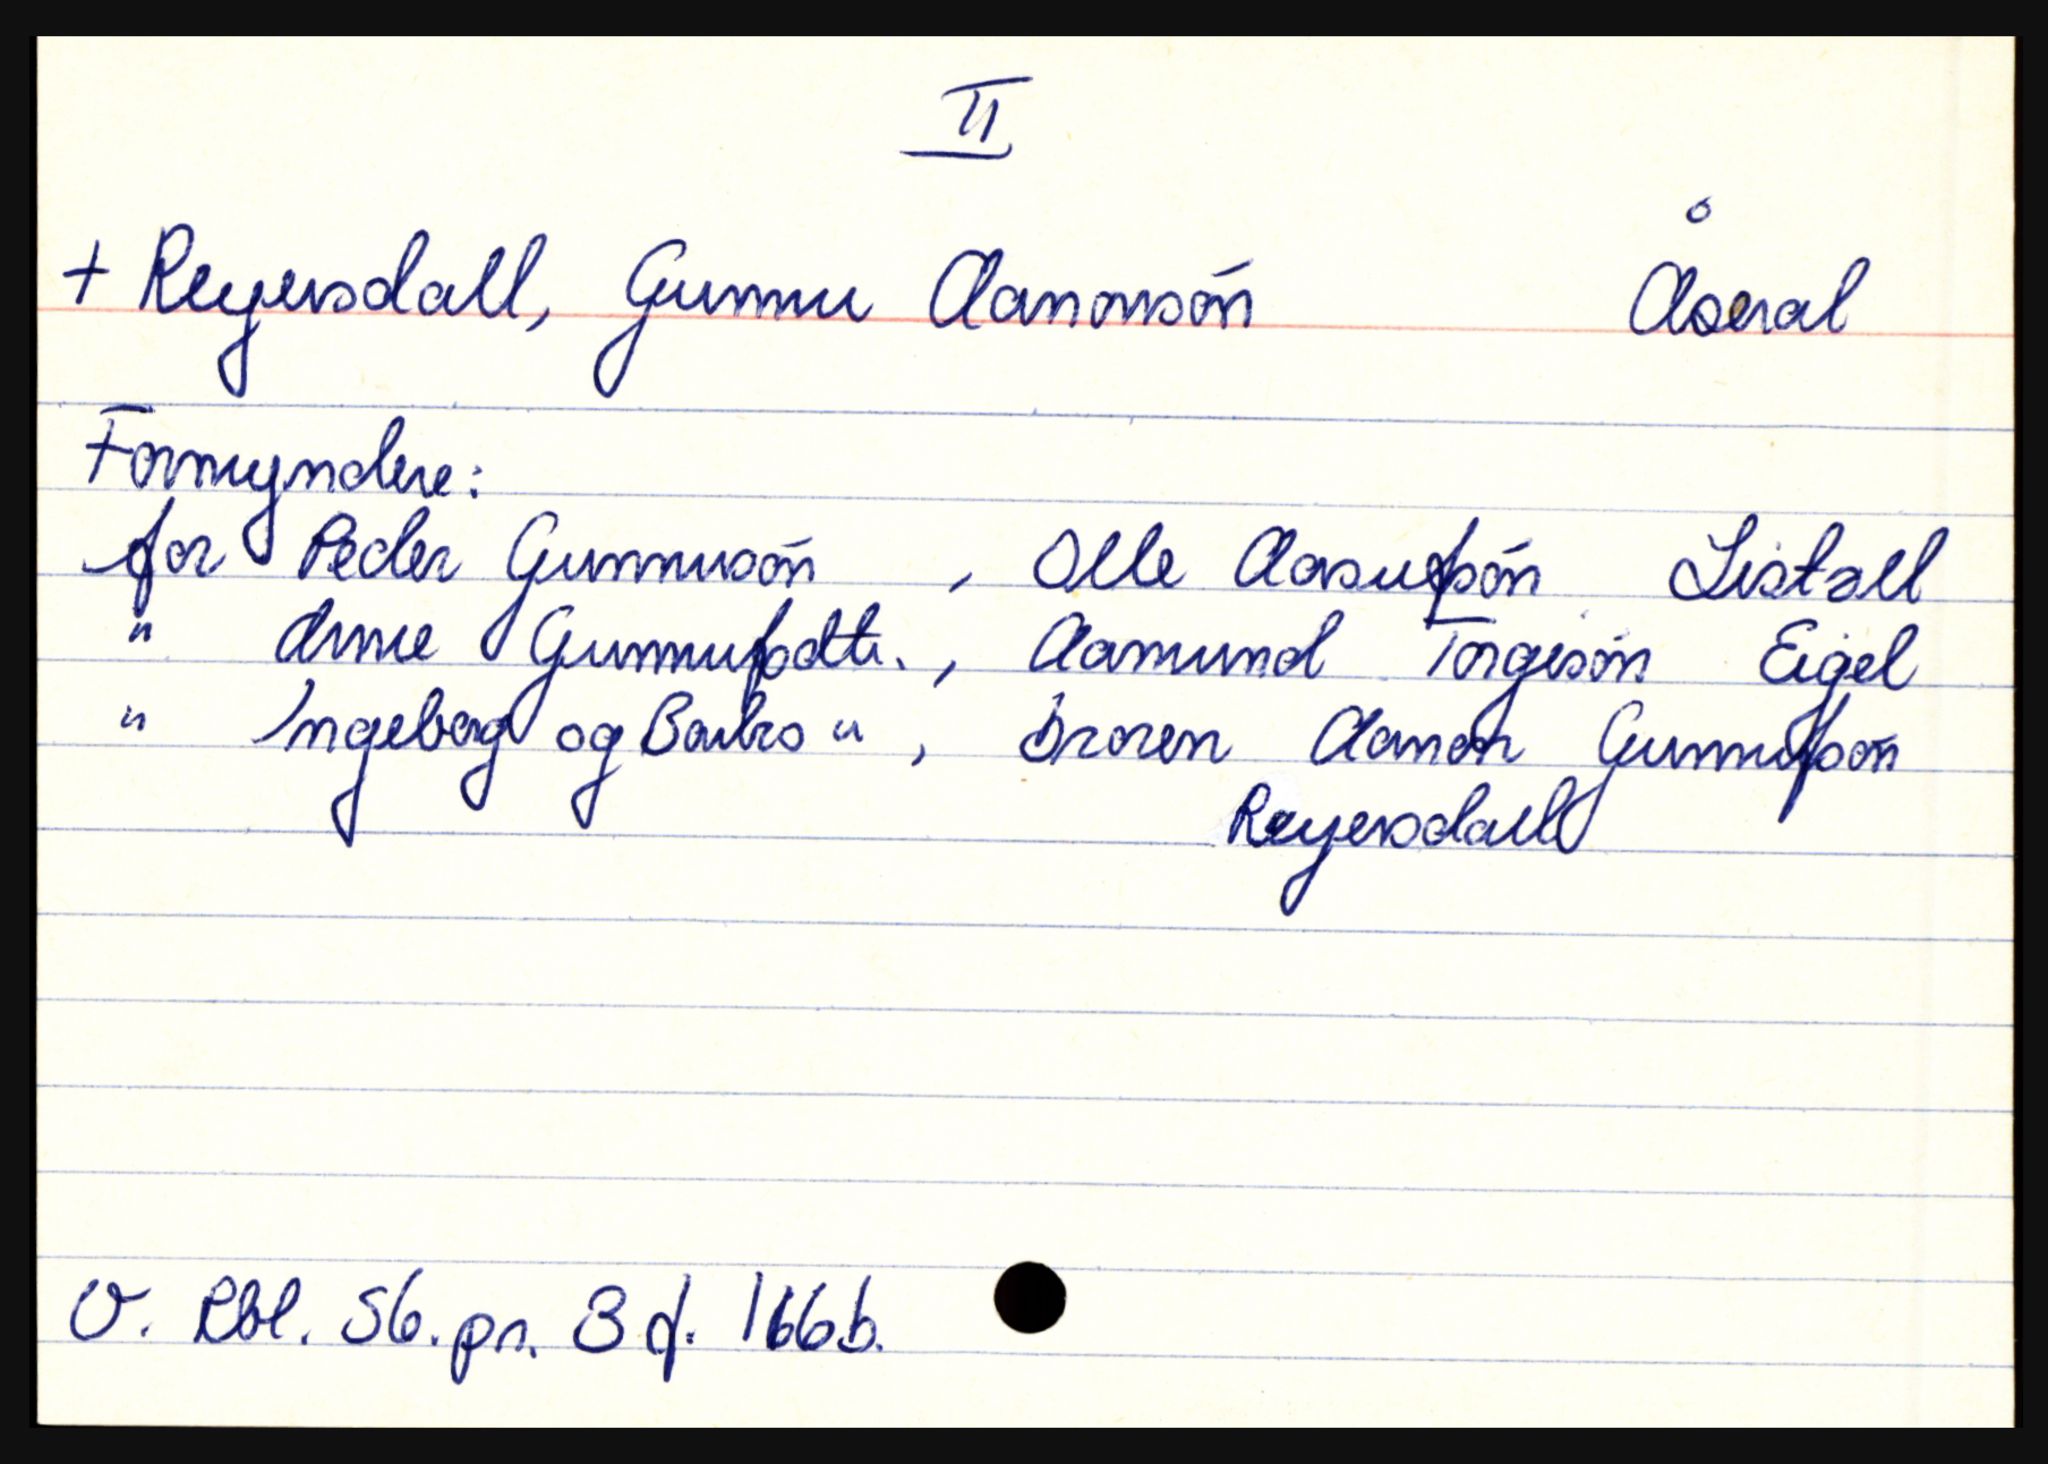 II
+ Reyersdall, Gunnu Aanonsön Åseral
Formyndere:
for Peder Gunnusön , Olle Aasufsön Listøll
" Anne Gunnufsdtr. , Aamund Torgisön Eigel
" Ingeborg og Barbro " , broren Aanon Gunnufsön
Reyersdall
V. Rbl. 56. pr. 3 f. 166b.